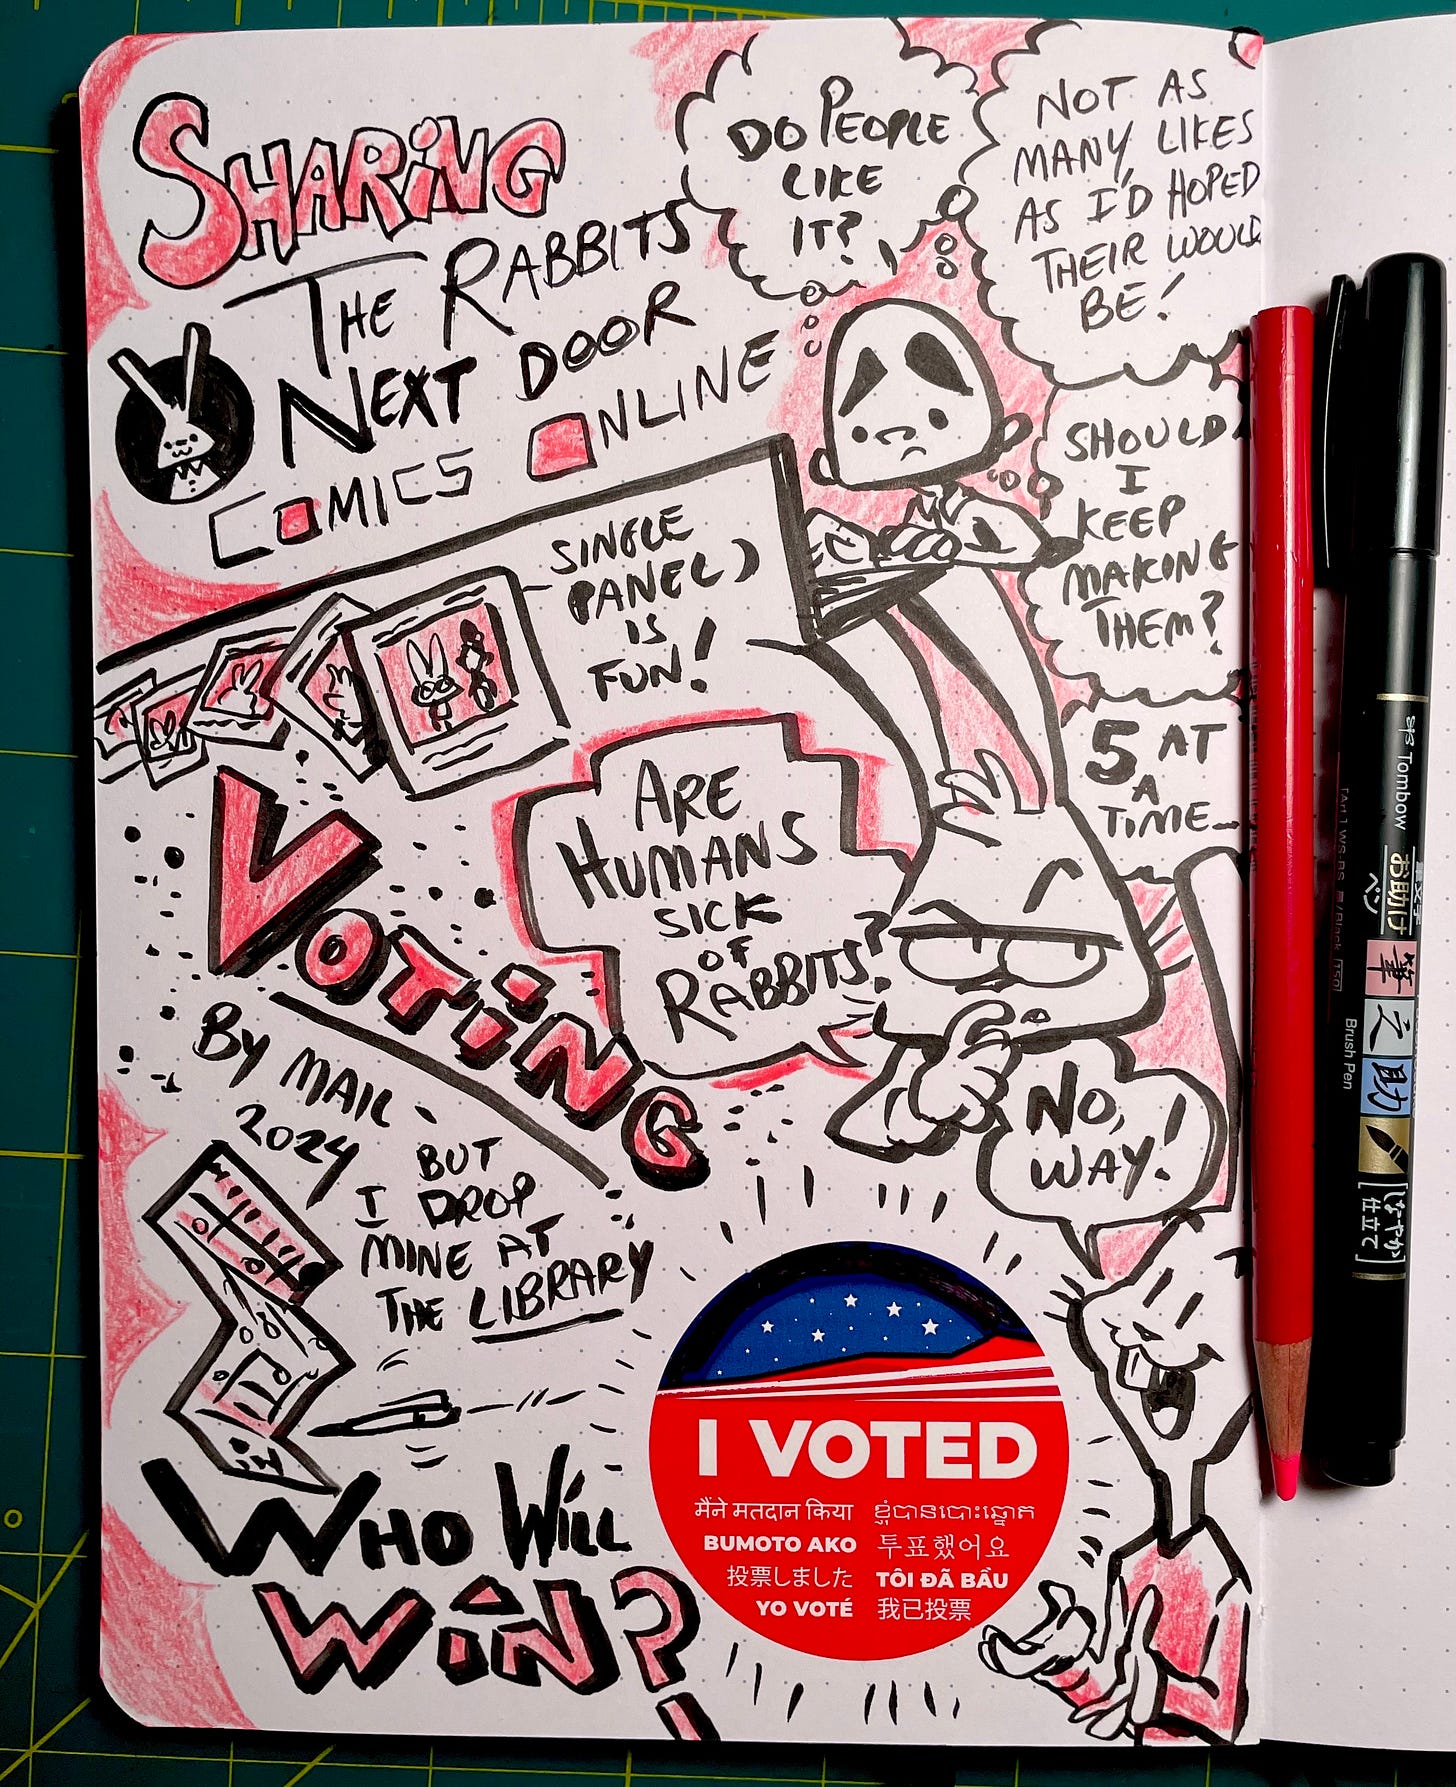 SHARING
THE RABBITS
NEXT DOOR
COMICS ONLINE
DO PEOPLE
LIKE
IT?
NOT AS
MANY LIKES
AS I'D HOPED
THEIR WOULD
BE!
SHOULD
I
KEEP
MAKING
THEM?
5 AT
A
TIME
SINGLE
PANEL
IS
FUN!
ARE
HUMANS
SICK
OF
RABBITS?
NO,
WAY!
VOTING
BY MAIL
2024
BUT
I DROP
MINE AT
THE LIBRARY
WHO WILL
WIN?
I VOTED
मैंने मतदान किया
ខ្ញុំបានបោះឆ្នោត
BUMOTO AKO
투표했어요
投票しました
TÔI ĐÃ BẦU
YO VOTÉ
我已投票
Tombow
お助け
筆之助
Brush Pen
[しなやか
仕立て]